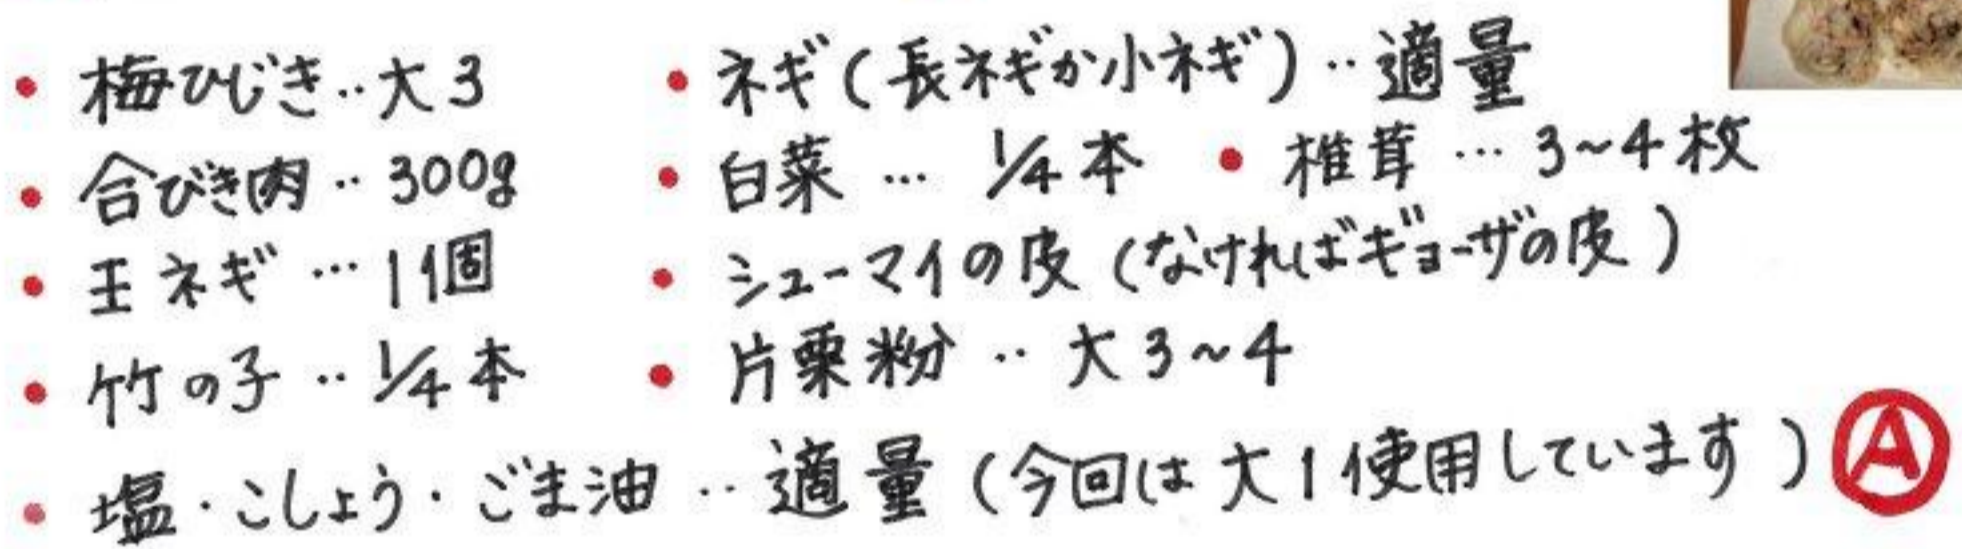 • 梅ひじき‥大3
• 合びき肉‥300g
• 玉ネギ…1個
• 竹の子‥1/4本
• ネギ(長ネギか小ネギ)‥適量
• 白菜…1/4本 • 椎茸…3~4枚
• シューマイの皮(なければギョーザの皮)
• 片栗粉‥大3~4
• 塩・こしょう・ごま油‥適量(今回は大1使用しています) Ⓐ